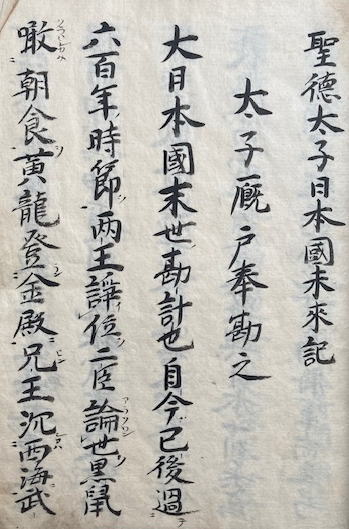 聖德太子日本國未來記
太子厩戸奉勘之
大日本國末世勘計也自今已後過
六百年時節两王諍位二臣論世黒鼠
噉朝食黄龍登金殿兄王沉西海武